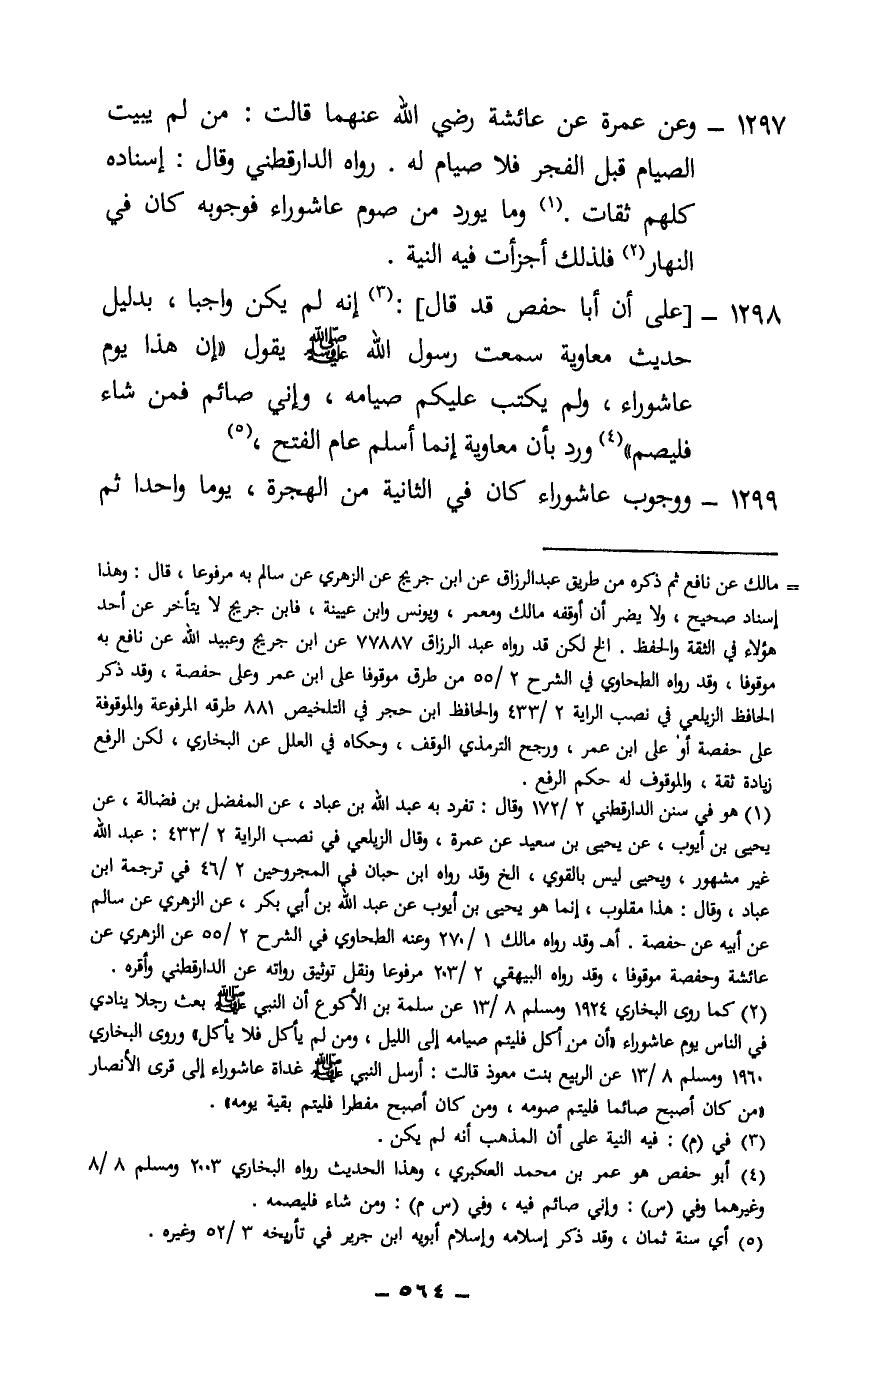 ١٢٩٧ ــ وعن عمرة عن عائشة رضي الله عنهما قالت : من لم يبيت
الصيام قبل الفجر فلا صيام له . رواه الدارقطني وقال : إسناده
كلهم ثقات .(١) وما يورد من صوم عاشوراء فوجوبه كان في
النهار(٢) فلذلك أجزأت فيه النية .
١٢٩٨ ــ [على أن أبا حفص قد قال] :(٣) إنه لم يكن واجبا ، بدليل
حديث معاوية سمعت رسول الله ﷺ يقول «إن هذا يوم
عاشوراء ، ولم يكتب عليكم صيامه ، وإني صائم فمن شاء
فليصم»(٤) ورد بأن معاوية إنما أسلم عام الفتح ،(٥)
١٢٩٩ ــ ووجوب عاشوراء كان في الثانية من الهجرة ، يوما واحدا ثم
= مالك عن نافع ثم ذكره من طريق عبدالرزاق عن ابن جريج عن الزهري عن سالم به مرفوعا ، قال : وهذا
إسناد صحيح ، ولا يضر أن أوقفه مالك ومعمر ، ويونس وابن عيينة ، فابن جريج لا يتأخر عن أحد
هؤلاء في الثقة والحفظ . الخ لكن قد رواه عبد الرزاق ٧٧٨٨٧ عن ابن جريج وعبيد الله عن نافع به
موقوفا ، وقد رواه الطحاوي في الشرح ٢ /٥٥ من طرق موقوفا على ابن عمر وعلى حفصة ، وقد ذكر
الحافظ الزيلعي في نصب الراية ٢ /٤٣٣ والحافظ ابن حجر في التلخيص ٨٨١ طرقه المرفوعة والموقوفة
على حفصة أو على ابن عمر ، ورجح الترمذي الوقف ، وحكاه في العلل عن البخاري ، لكن الرفع
زيادة ثقة ، والموقوف له حكم الرفع .
(١) هو في سنن الدارقطني ٢ /١٧٢ وقال : تفرد به عبد الله بن عباد ، عن المفضل بن فضالة ، عن
يحيى بن أيوب ، عن يحيى بن سعيد عن عمرة ، وقال الزيلعي في نصب الراية ٢ /٤٣٣ : عبد الله
غير مشهور ، ويحيى ليس بالقوي ، الخ وقد رواه ابن حبان في المجروحين ٢ /٤٦ في ترجمة ابن
عباد ، وقال : هذا مقلوب ، إنما هو يحيى بن أيوب عن عبد الله بن أبي بكر ، عن الزهري عن سالم
عن أبيه عن حفصة . أهـ وقد رواه مالك ١ /٢٧٠ وعنه الطحاوي في الشرح ٢ /٥٥ عن الزهري عن
عائشة وحفصة موقوفا ، وقد رواه البيهقي ٢ /٢٠٣ مرفوعا ونقل توثيق رواته عن الدارقطني وأقره .
(٢) كما روى البخاري ١٩٢٤ ومسلم ٨ /١٣ عن سلمة بن الأكوع أن النبي ﷺ بعث رجلا ينادي
في الناس يوم عاشوراء «أن من أكل فليتم صيامه إلى الليل ، ومن لم يأكل فلا يأكل» وروى البخاري
١٩٦٠ ومسلم ٨ /١٣ عن الربيع بنت معوذ قالت : أرسل النبي ﷺ غداة عاشوراء إلى قرى الأنصار
«من كان أصبح صائما فليتم صومه ، ومن كان أصبح مفطرا فليتم بقية يومه» .
(٣) في (م) : فيه النية على أن المذهب أنه لم يكن .
(٤) أبو حفص هو عمر بن محمد العكبري ، وهذا الحديث رواه البخاري ٢٠٠٣ ومسلم ٨ /٨
وغيرهما وفي (س) : وإني صائم فيه ، وفي (س م) : ومن شاء فليصمه .
(٥) أي سنة ثمان ، وقد ذكر إسلامه وإسلام أبويه ابن جرير في تأريخه ٣ /٥٢ وغيره .
ــ ٥٦٤ ــ